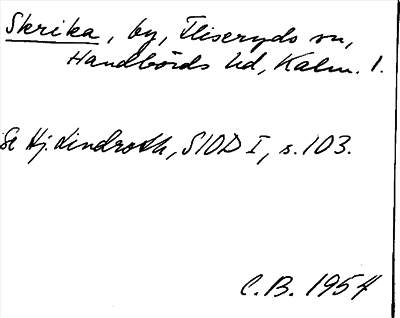 Skrika, by, Fliseryds sn,
Handbörds hd, Kalm. l.
Se Hj. Lindroth, SIOD I, s. 103.
C.B. 1954